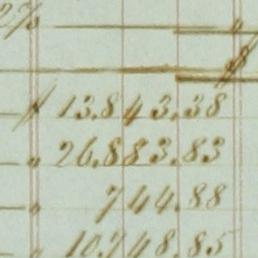 2%
$ 13.843.38
" 26.883.83
" 744.88
" 10.748.85